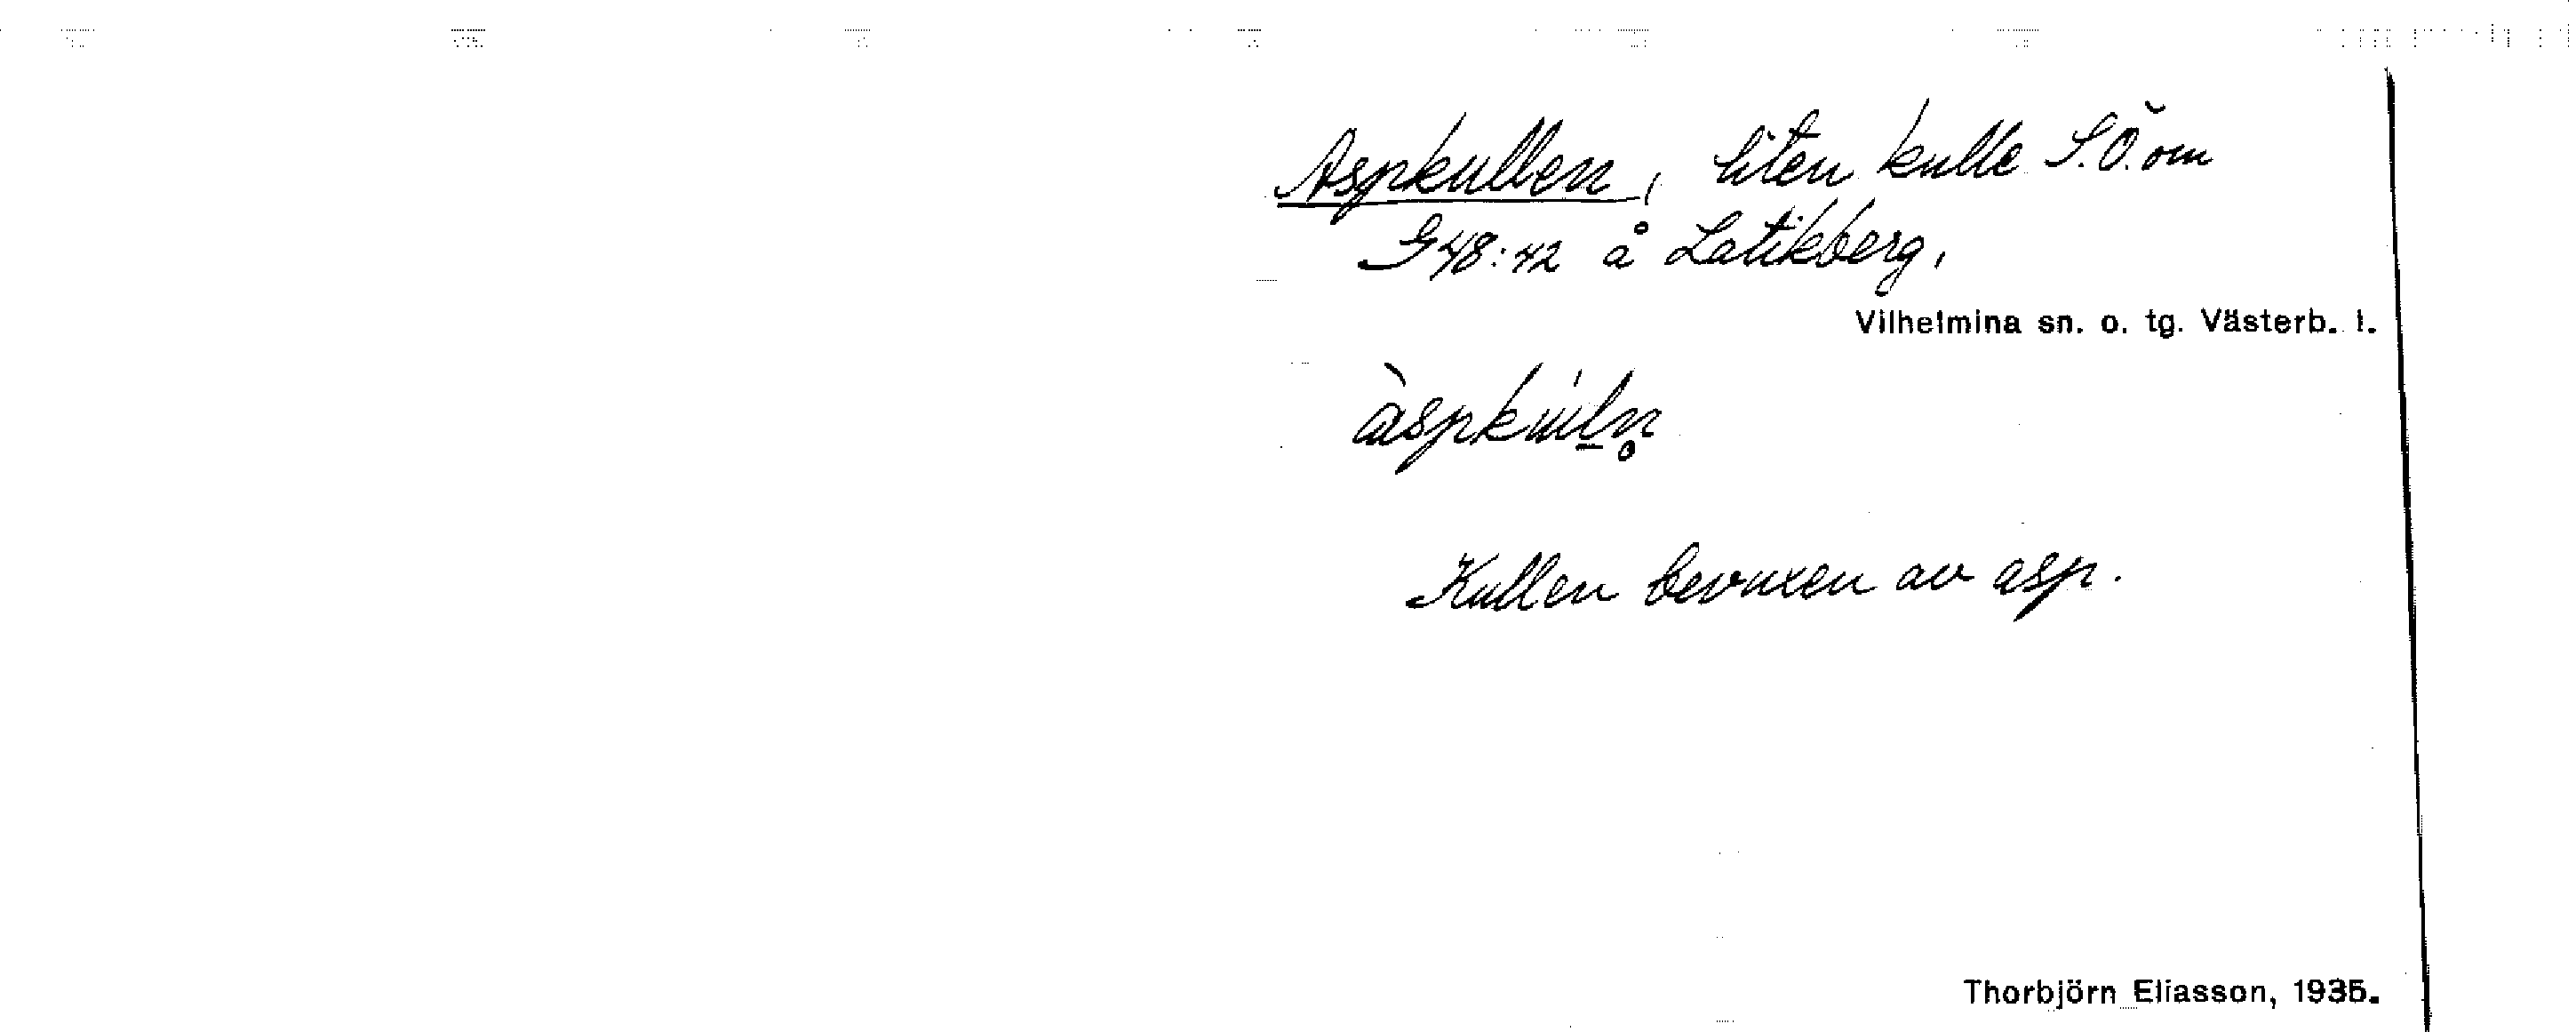 Aspkullen, liten kulle S.Ö. om
G 48:42 å Latikberg.
Vilhelmina sn. o. tg. Västerb. l.
àspkúln̥
Kullen bevuxen av asp.
Thorbjörn Eliasson, 1935.